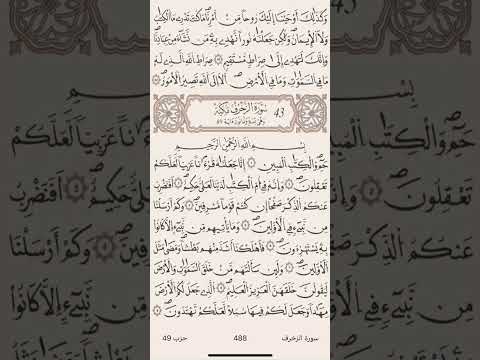 وَكَذَٰلِكَ أَوْحَيْنَا إِلَيْكَ رُوحاً مِّنْ أَمْرِنَا مَا كُنتَ تَدْرِے مَا اَ۬لْكِتَٰبُ
وَلَا اَ۬لْإِيمَٰنُ وَلَٰكِن جَعَلْنَٰهُ نُوراً نَّهْدِے بِهِۦ مَن نَّشَآءُ مِنْ عِبَادِنَا
وَإِنَّكَ لَتَهْدِےٓ إِلَىٰ صِرَٰطٖ مُّسْتَقِيمٖ صِرَٰطِ اِ۬للَّهِ اِ۬لذِے لَهُۥ
مَا فِے اِ۬لسَّمَٰوَٰتِ وَمَا فِے اِ۬لْأَرْضِ أَلَآ إِلَى اَ۬للَّهِ تَصِيرُ اُ۬لْأُمُورُ
سُورَةُ الزُّخْرُفِ مَكِّيَّة 43
بِسْمِ اِ۬للَّهِ اِ۬لرَّحْمَٰنِ اِ۬لرَّحِيمِ
حَمِٓ وَالْكِتَٰبِ اِ۬لْمُبِينِ إِنَّا جَعَلْنَٰهُ قُرْءَٰناً عَرَبِيّاً لَّعَلَّكُمْ
تَعْقِلُونَ وَإِنَّهُۥ فِےٓ أُمِّ اِ۬لْكِتَٰبِ لَدَيْنَا لَعَلِيٌّ حَكِيمٌ أَفَنَضْرِبُ
عَنكُمُ اُ۬لذِّكْرَ صَفْحاً إِن كُنتُمْ قَوْماً مُّسْرِفِينَ وَكَمْ أَرْسَلْنَا
مِن نَّبِےٓءٖ فِے اِ۬لْأَوَّلِينَ وَمَا يَأْتِيهِم مِّن نَّبِےٓءٍ إِلَّا كَانُواْ
بِهِۦ يَسْتَهْزِءُونَ فَأَهْلَكْنَآ أَشَدَّ مِنْهُم بَطْشاً وَمَضَىٰ مَثَلُ
اُ۬لْأَوَّلِينَ وَلَئِن سَأَلْتَهُم مَّنْ خَلَقَ اَ۬لسَّمَٰوَٰتِ وَالْأَرْضَ
لَيَقُولُنَّ خَلَقَهُنَّ اَ۬لْعَزِيزُ اُ۬لْعَلِيمُ اُ۬لذِے جَعَلَ لَكُمُ اُ۬لْأَرْضَ
مِهَٰداً وَجَعَلَ لَكُمْ فِيهَا سُبُلاً لَّعَلَّكُمْ تَهْتَدُونَ
سورة الزخرف 488 حزب 49